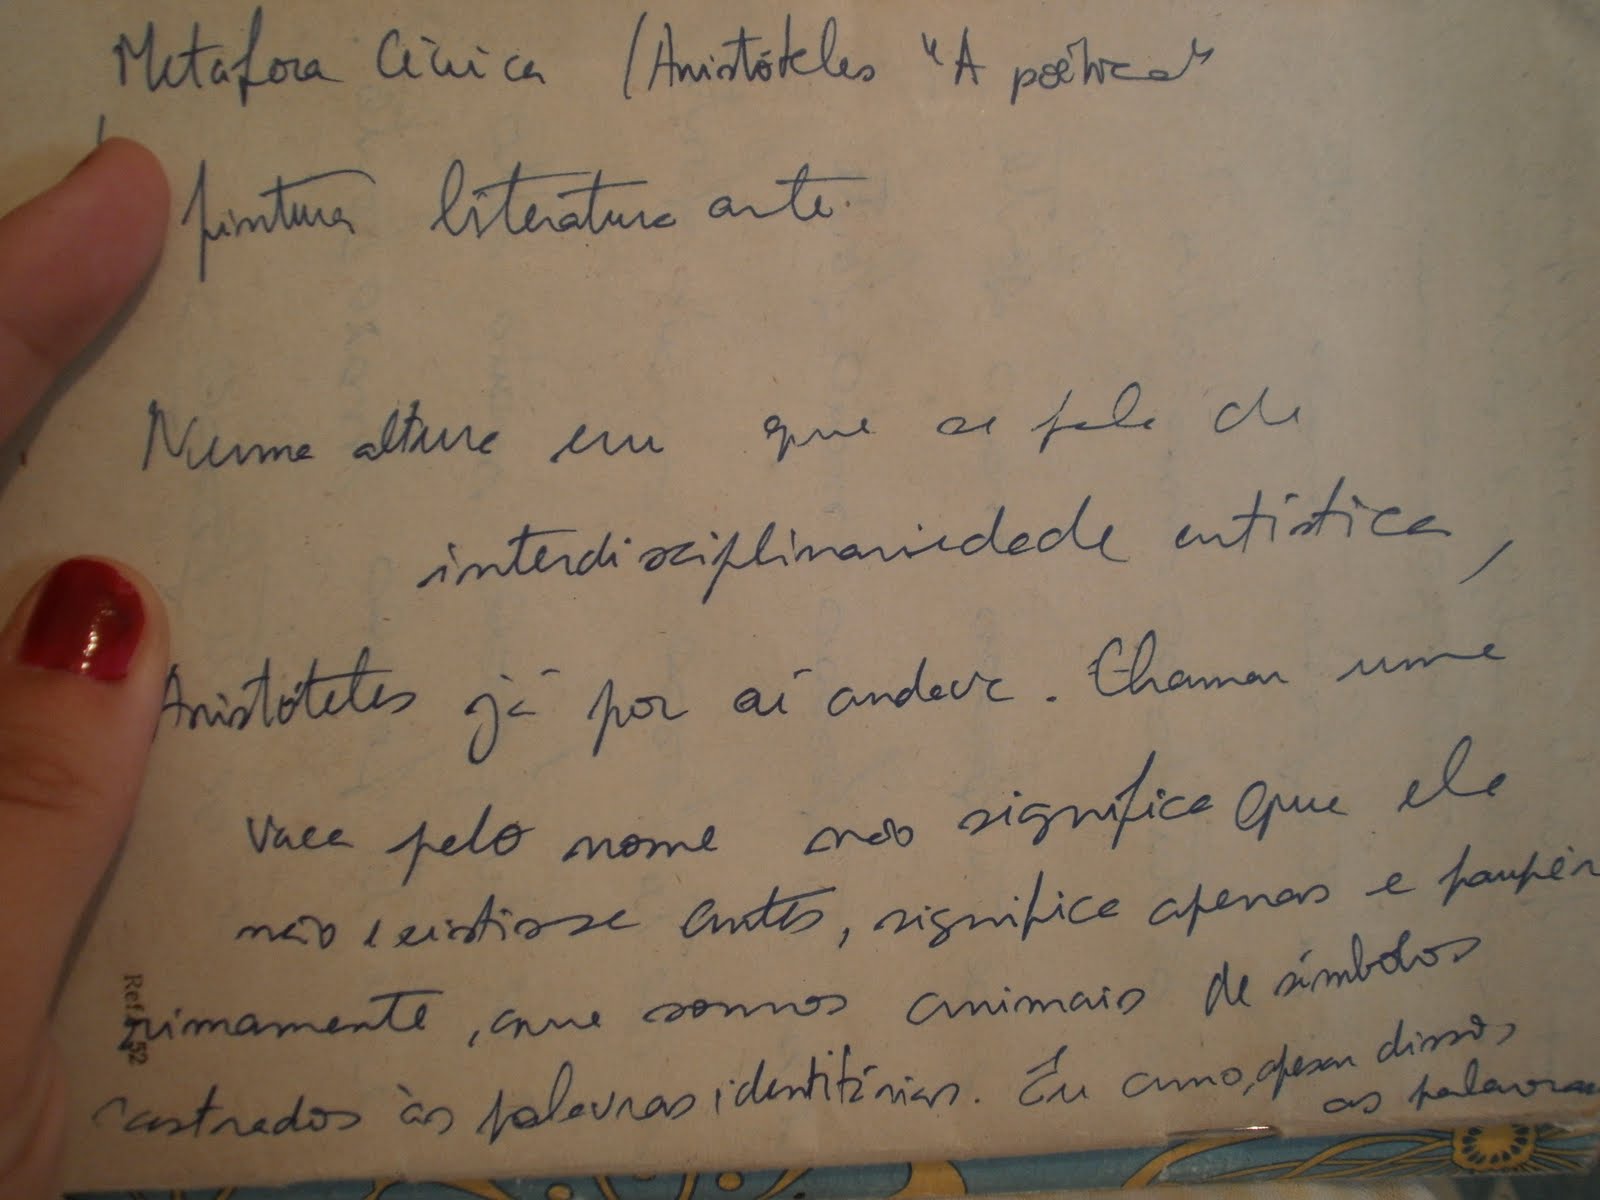 Metafora Cívica (Aristóteles "A poética"
pintura literatura arte.
Numa altura em que se fala de
interdisciplinariedade artística,
Aristóteles já por aí andava. Chamar uma
vaca pelo nome não significa que ela
não existisse antes, significa apenas e paupér
rimamente, que somos animais de símbolos
castrados às palavras identitárias. Eu amo, apesar disso
as palavras
Ref. 52